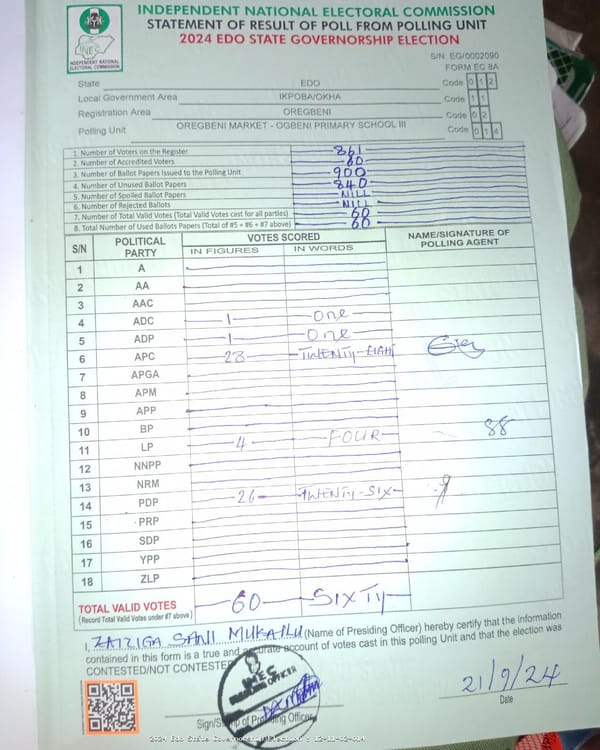 INDEPENDENT NATIONAL ELECTORAL COMMISSION
STATEMENT OF RESULT OF POLL FROM POLLING UNIT
2024 EDO STATE GOVERNORSHIP ELECTION
INEC
INDEPENDENT NATIONAL ELECTORAL COMMISSION
S/N: EG/0002090
FORM EC 8A
State EDO Code 0 1 2
Local Government Area IKPOBA/OKHA Code 1 1
Registration Area OREGBENI Code 0 2
Polling Unit OREGBENI MARKET - OGBENI PRIMARY SCHOOL III Code 0 1 4
1. Number of Voters on the Register 861
2. Number of Accredited Voters 60
3. Number of Ballot Papers Issued to the Polling Unit 900
4. Number of Unused Ballot Papers 840
5. Number of Spoiled Ballot Papers NILL
6. Number of Rejected Ballots NILL
7. Number of Total Valid Votes (Total Valid Votes cast for all parties) 60
8. Total Number of Used Ballots Papers (Total of #5 + #6 + #7 above) 60
S/N POLITICAL PARTY VOTES SCORED NAME/SIGNATURE OF POLLING AGENT
IN FIGURES IN WORDS
1 A
2 AA
3 AAC
4 ADC 1 One
5 ADP 1 One
6 APC 28 TWENTY-EIGHT
7 APGA
8 APM
9 APP
10 BP
11 LP 4 FOUR
12 NNPP
13 NRM
14 PDP 26 TWENTY-SIX
15 PRP
16 SDP
17 YPP
18 ZLP
TOTAL VALID VOTES 60 SIXTY
(Record Total Valid Votes under #7 above)
I, SANI (Name of Presiding Officer) hereby certify that the information
contained in this form is a true and accurate account of votes cast in this polling Unit and that the election was
CONTESTED/NOT CONTESTED
INEC
PRESIDING OFFICER
21/9/24
Sign/Stamp of Presiding Officer
Date
2024 Edo State Governorship Election : 12-11-02-014